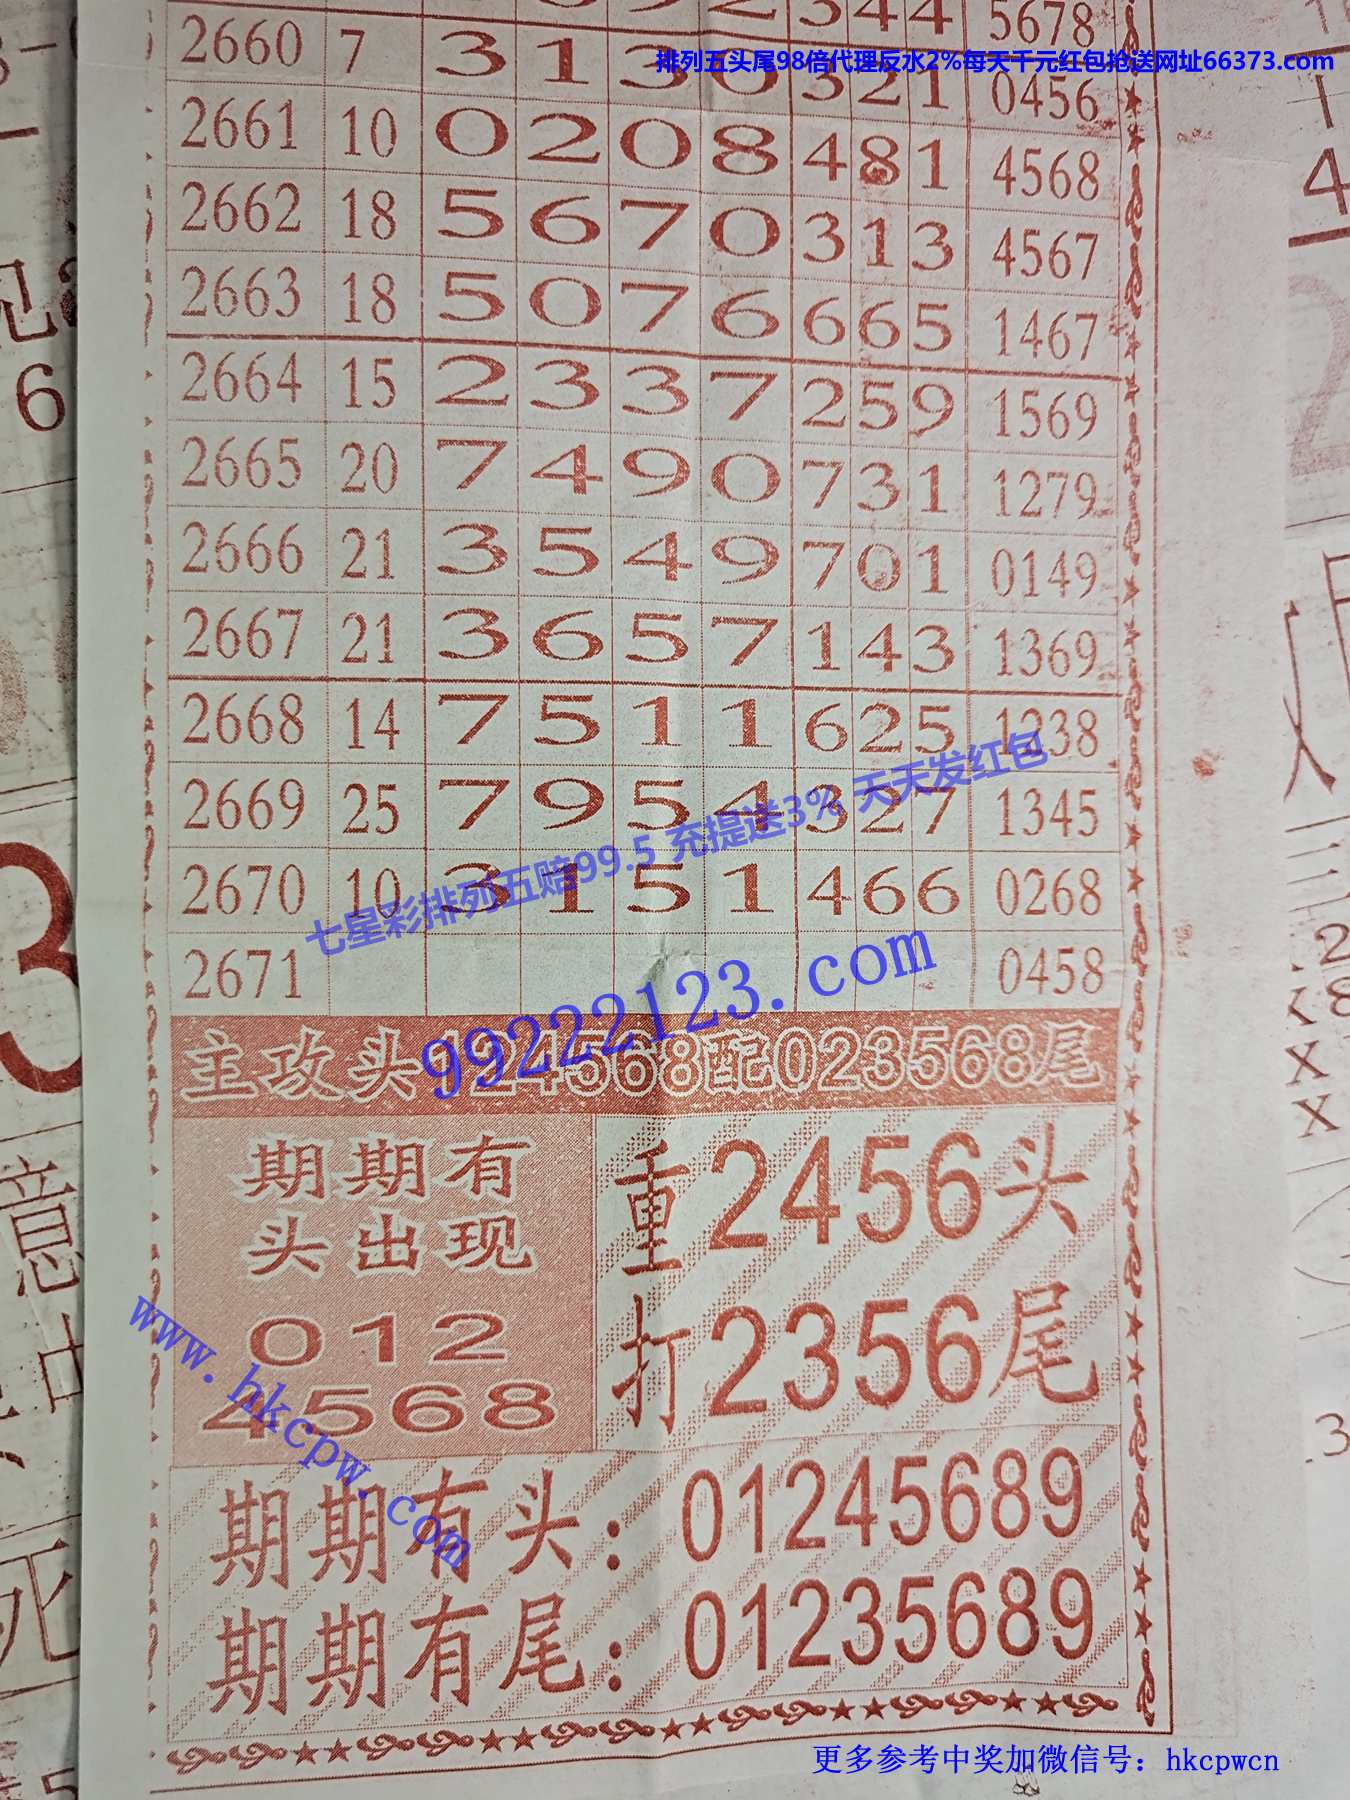 344 5678
排列五头尾98倍代理反水2%每天千元红包抢送网址66373.com
2660 7 3 1 3 0 3 2 1 0456
2661 10 0 2 0 8 4 8 1 4568
2662 18 5 6 7 0 3 1 3 4567
2663 18 5 0 7 6 6 6 5 1467
2664 15 2 3 3 7 2 5 9 1569
2665 20 7 4 9 0 7 3 1 1279
2666 21 3 5 4 9 7 0 1 0149
2667 21 3 6 5 7 1 4 3 1369
2668 14 7 5 1 1 6 2 5 1238
2669 25 7 9 5 4 3 2 7 1345
七星彩排列五赔99.5 充提送3% 天天发红包
2670 10 3 1 5 1 4 6 6 0268
2671 0458
99222123.com
主攻头124568配023568尾
期期有
头出现
012
4568
重2456头
打2356尾
www.hkcpw.com
期期有头：01245689
期期有尾：01235689
更多参考中奖加微信号：hkcpwcn
6
3
意
死
4
三
2
8
X
X
3